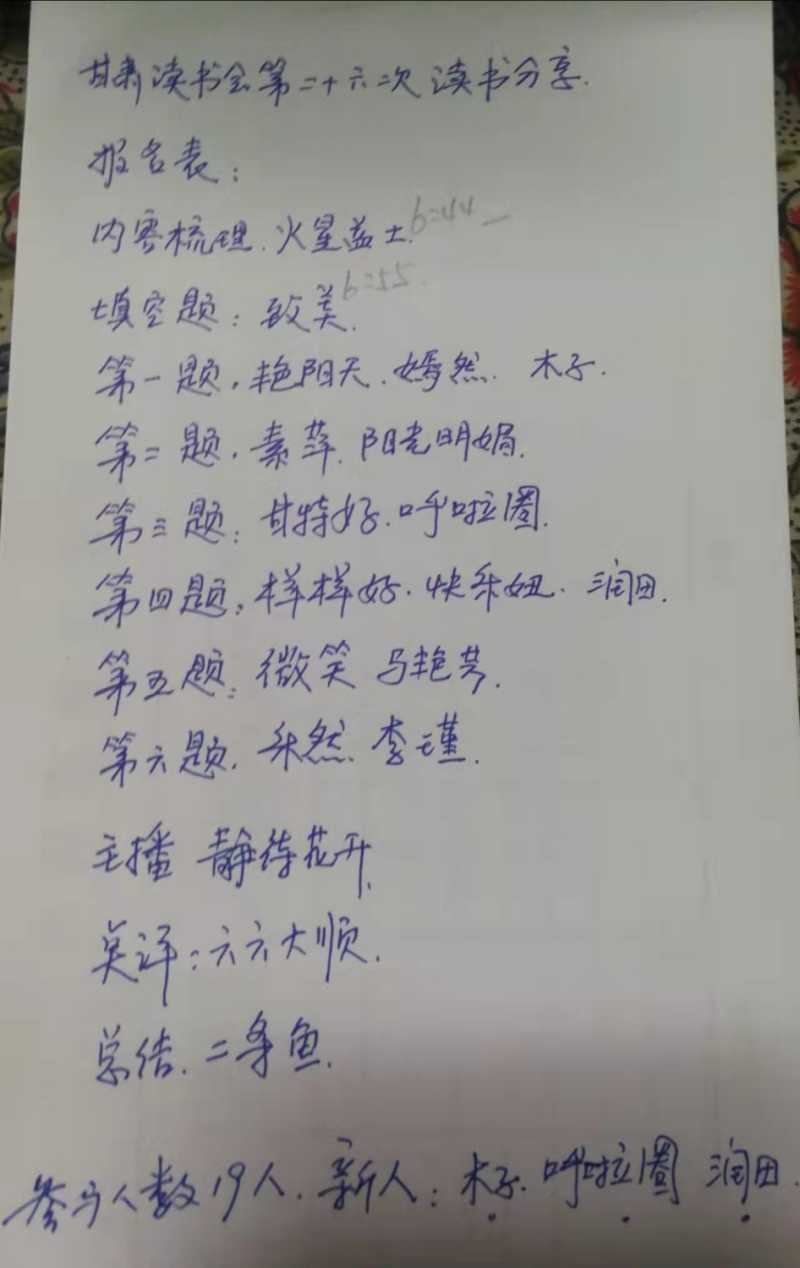 甘肃读书会第二十六次读书分享.
报名表:
内容梳理.火星益士. 6:44 —
填空题:致美. 6:55.
第一题.艳阳天.嫣然. 木子.
第二题.素萍.阳光明媚.
第三题:甘特好.呼啦圈.
第四题:样样好.快乐妞. 润田.
第五题:微笑 马艳芳.
第六题.乐然.李瑾.
主播 静待花开.
点评:六六大顺.
总结.二条鱼.
参与人数19人.新人:木子.呼啦圈 润田.